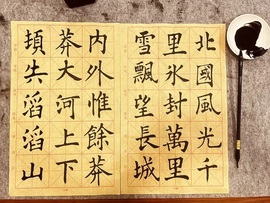 北國風光千
里氷封萬里
雪飄望長城
内外惟餘莽
莽大河上下
頓失滔滔山